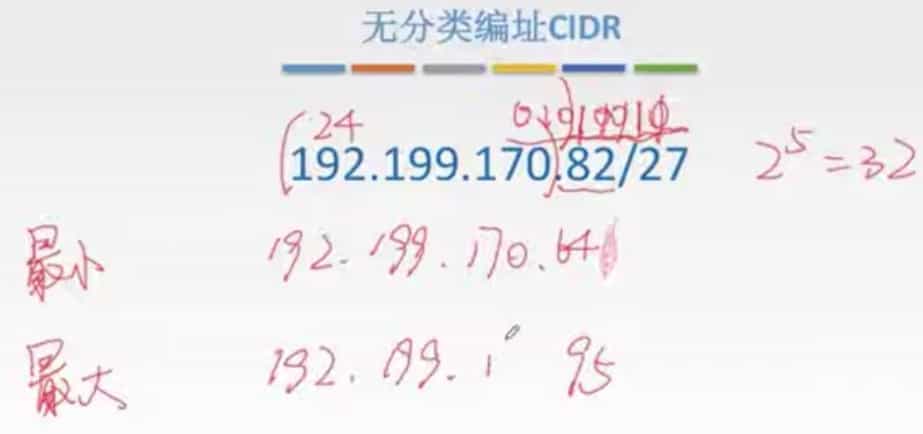 无分类编址CIDR
24
192.199.170.82/27
2^5=32
最小 192.199.170.64
最大 192.199.1 95